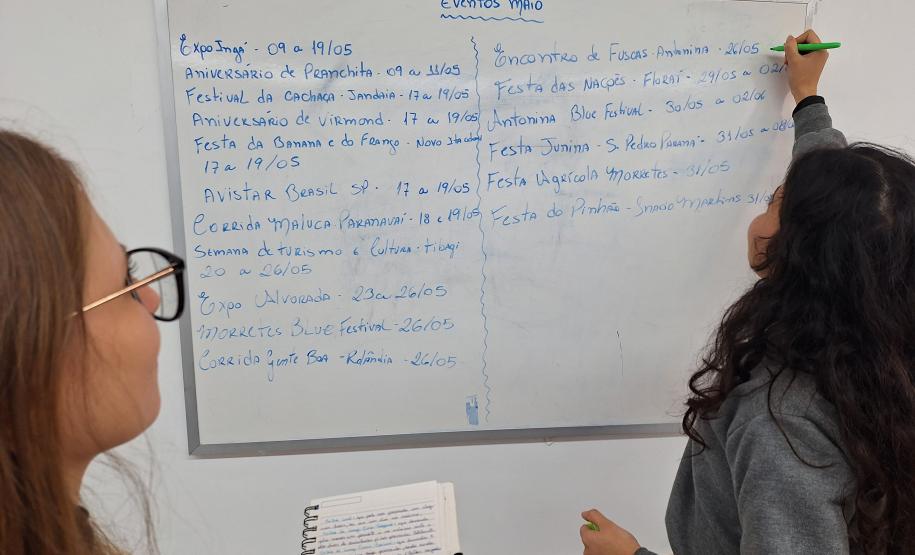 EVENTOS MAIO
ExpoIngá - 09 a 19/05
ANIVERSÁRIO de PRANCHITA - 09 a 11/05
FESTIVAL DA CACHAÇA - JANDAIA - 17 a 19/05
ANIVERSÁRIO de VIRMOND - 17 a 19/05
FESTA DA BANANA e do FRANGO - NOVO
17 a 19/05
AVISTAR BRASIL SP - 17 a 19/05
CORRIDA MALUCA PARANAVAÍ - 18 e 19/05
SEMANA de TURISMO e CULTURA - tibagi
20 a 26/05
EXPO ALVORADA - 23 a 26/05
MORRETES BLUE Festival - 26/05
CORRIDA Gente BOA - Rolândia - 26/05
ENCONTRO de FUSCAS - Antonina - 26/05
FESTA DAS NAÇÕES - FLORAÍ - 29/05 a 02/
Antonina Blue Festival - 30/05 a 02/06
FESTA JUNINA - S. PEDRO PARANÁ - 31/05 a
FESTA AGRÍCOLA MORRETES - 31/05
FESTA do PINHÃO - INÁCIO MARTINS 31/